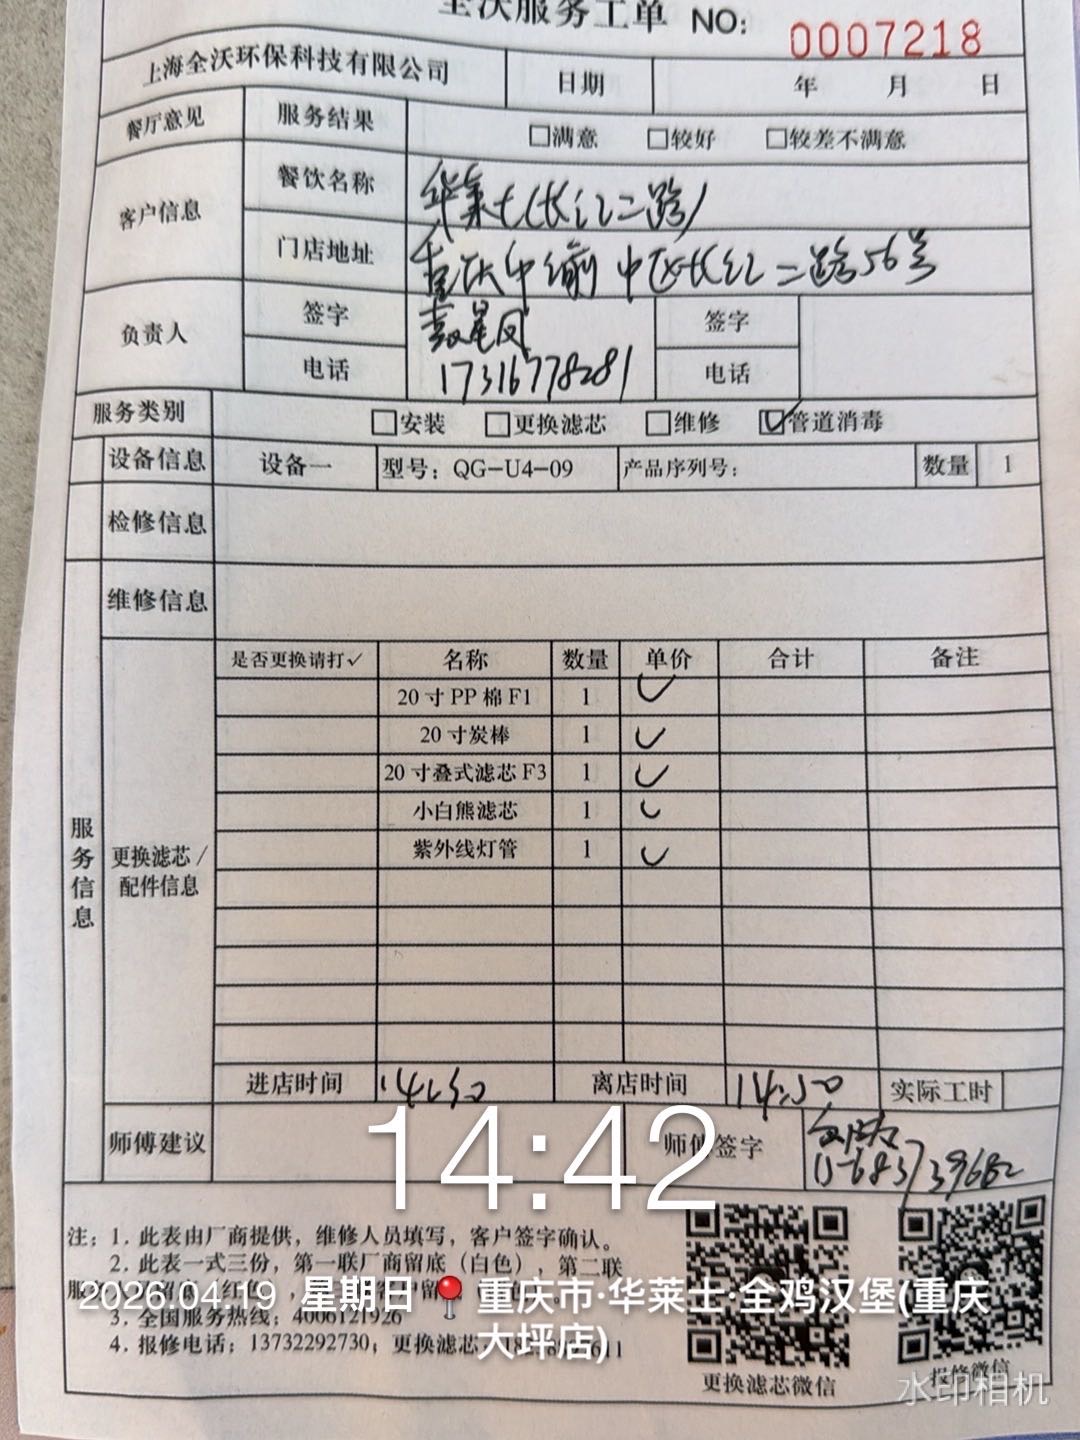 全沃服务工单 NO: 0007218
上海全沃环保科技有限公司 日期 年 月 日
餐厅意见 服务结果 □满意 □较好 □较差不满意
客户信息 餐饮名称 华莱士(长江二路)
门店地址 重庆市渝中区长江二路56号
负责人 签字 星凤 签字
电话 17316778281 电话
服务类别 □安装 □更换滤芯 □维修 ☑管道消毒
设备信息 设备一 型号：QG-U4-09 产品序列号： 数量 1
检修信息
维修信息
服务信息
更换滤芯/
配件信息
是否更换请打✓ 名称 数量 单价 合计 备注
20寸PP棉F1 1 ✓
20寸炭棒 1 ✓
20寸叠式滤芯F3 1 ✓
小白熊滤芯 1 ✓
紫外线灯管 1 ✓
进店时间 离店时间 14:50 实际工时
师傅建议 师傅签字
14:42
注：1. 此表由厂商提供，维修人员填写，客户签字确认。
2. 此表一式三份，第一联厂商留底（白色），第二联
2026.04.19 星期日 重庆市·华莱士·全鸡汉堡(重庆
大坪店)
3. 全国服务热线：4006121926
4. 报修电话：13732292730；更换滤芯：
更换滤芯微信
报修微信
水印相机